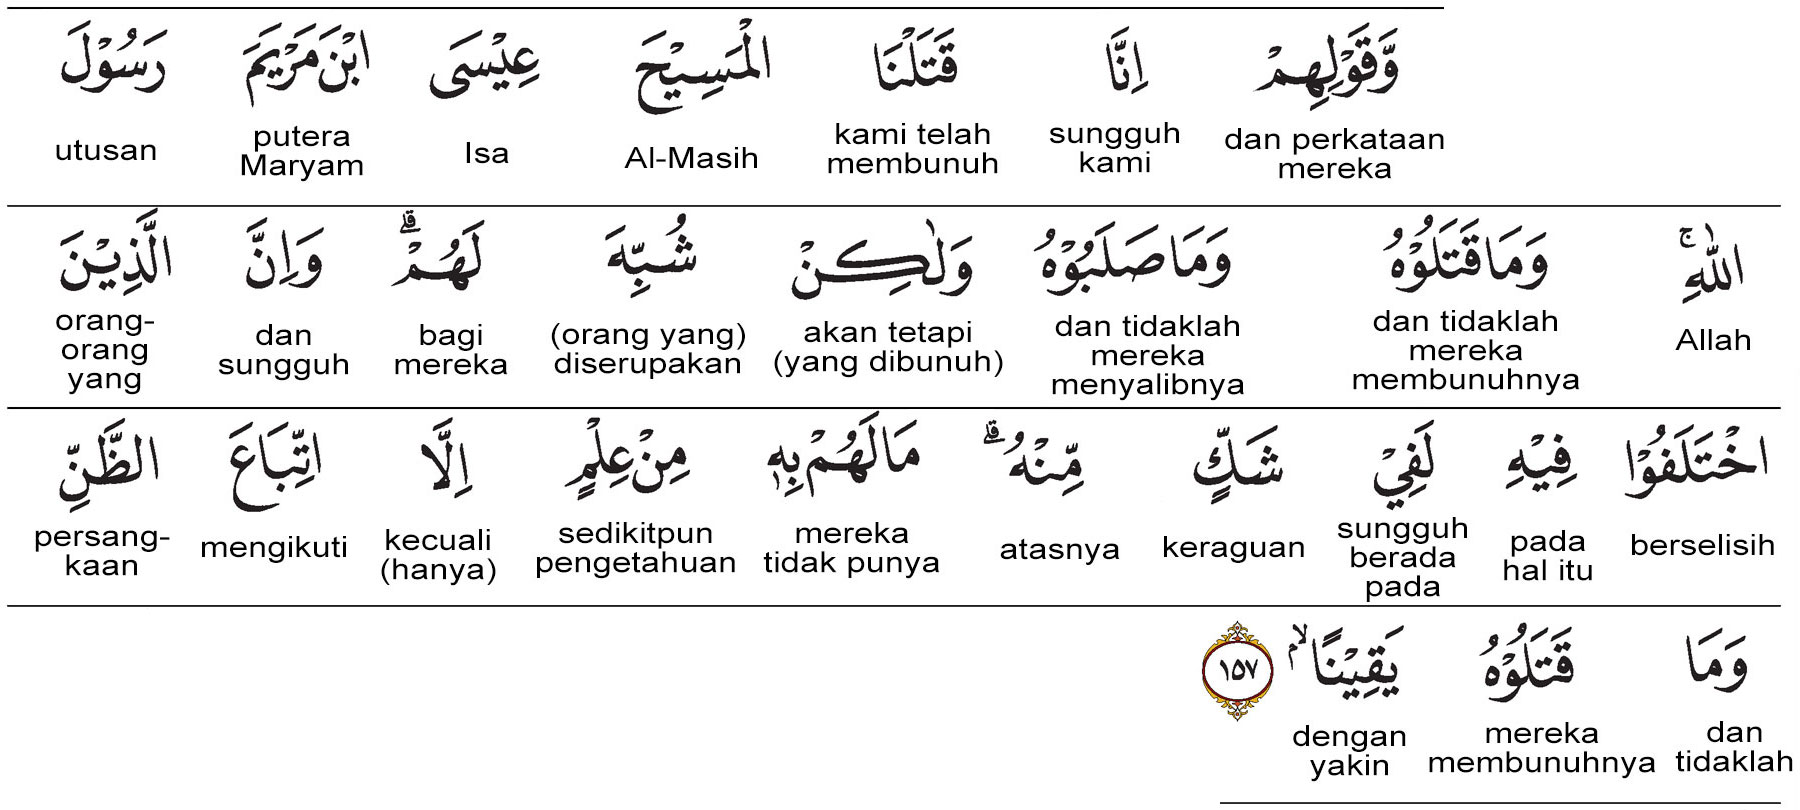 وَّقَوْلِهِمْ اِنَّا قَتَلْنَا الْمَسِيْحَ عِيْسَى ابْنَ مَرْيَمَ رَسُوْلَ
dan perkataan mereka sungguh kami kami telah membunuh Al-Masih Isa putera Maryam utusan
اللّٰهِۚ وَمَا قَتَلُوْهُ وَمَا صَلَبُوْهُ وَلٰكِنْ شُبِّهَ لَهُمْۗ وَاِنَّ الَّذِيْنَ
Allah dan tidaklah mereka membunuhnya dan tidaklah mereka menyalibnya akan tetapi (yang dibunuh) (orang yang) diserupakan bagi mereka dan sungguh orang-orang yang
اخْتَلَفُوْا فِيْهِ لَفِيْ شَكٍّ مِّنْهُۗ مَا لَهُمْ بِهٖ مِنْ عِلْمٍ اِلَّا اتِّبَاعَ الظَّنِّ
berselisih pada hal itu sungguh berada pada keraguan atasnya mereka tidak punya sedikitpun pengetahuan kecuali (hanya) mengikuti persang-kaan
وَمَا قَتَلُوْهُ يَقِيْنًاۙ ١٥٧
dan tidaklah mereka membunuhnya dengan yakin